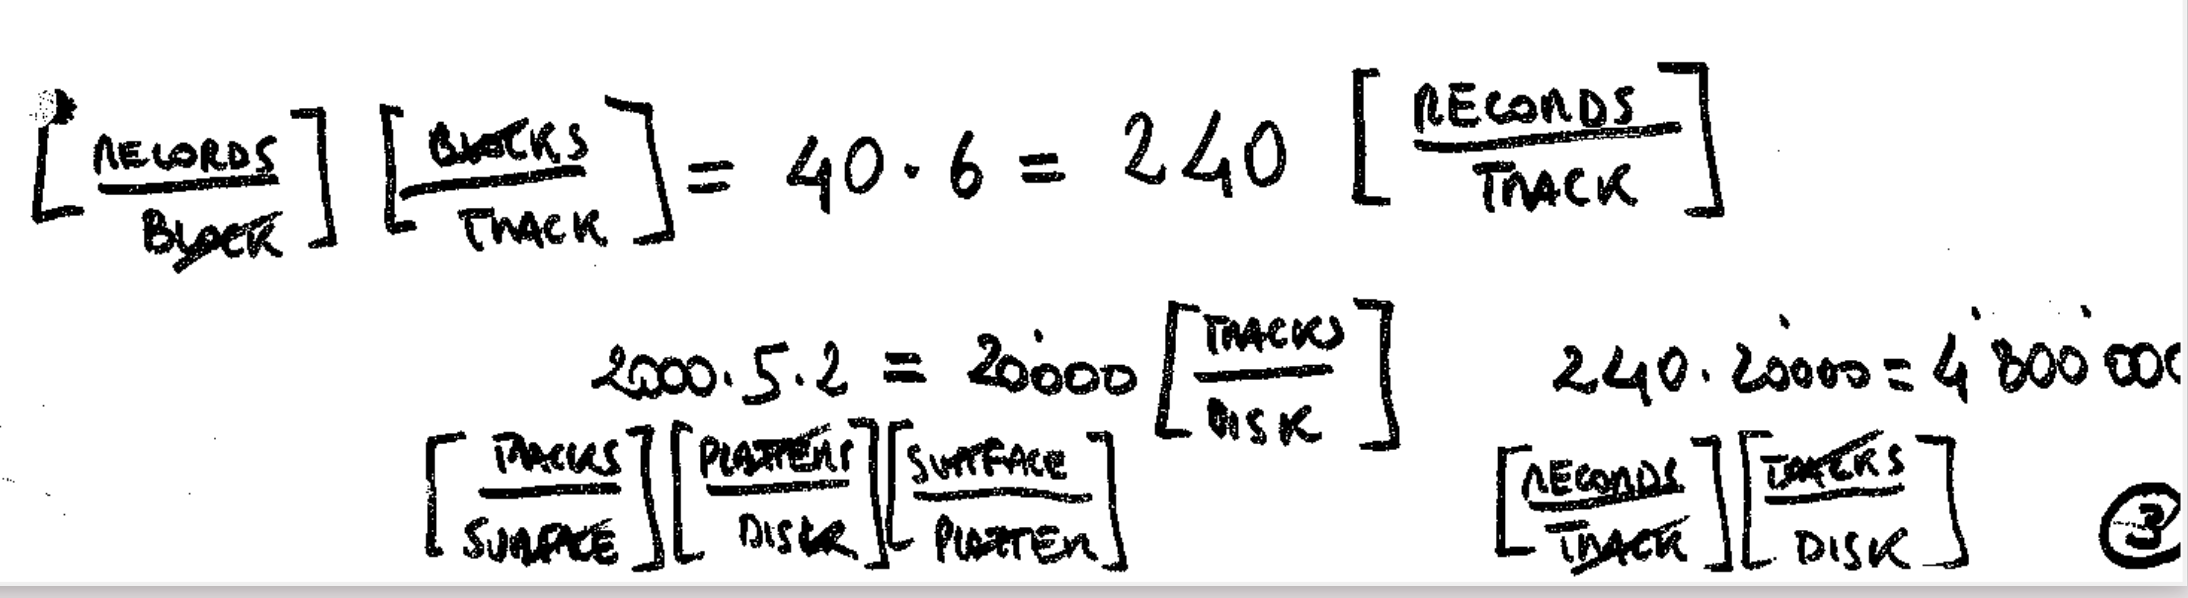 [RECORDS / BLOCK] [BLOCKS / TRACK] = 40 · 6 = 240 [RECORDS / TRACK]
2000 · 5 · 2 = 20'000 [TRACKS / DISK]
[TRACKS / SURFACE] [PLATTERS / DISK] [SURFACE / PLATTER]
240 · 20'000 = 4'800'000
[RECORDS / TRACK] [TRACKS / DISK]
3